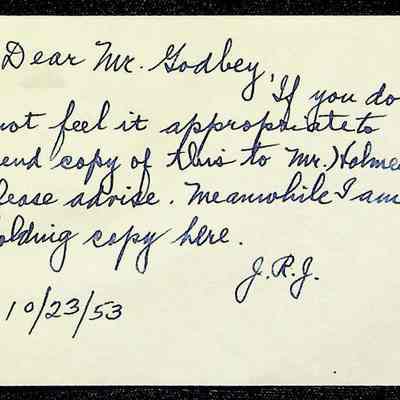 Dear Mr. Godbey,
If you do
not feel it appropriate to
send copy of this to Mr. Holmes
please advise. Meanwhile I am
holding copy here.
J.R.J.
10/23/53